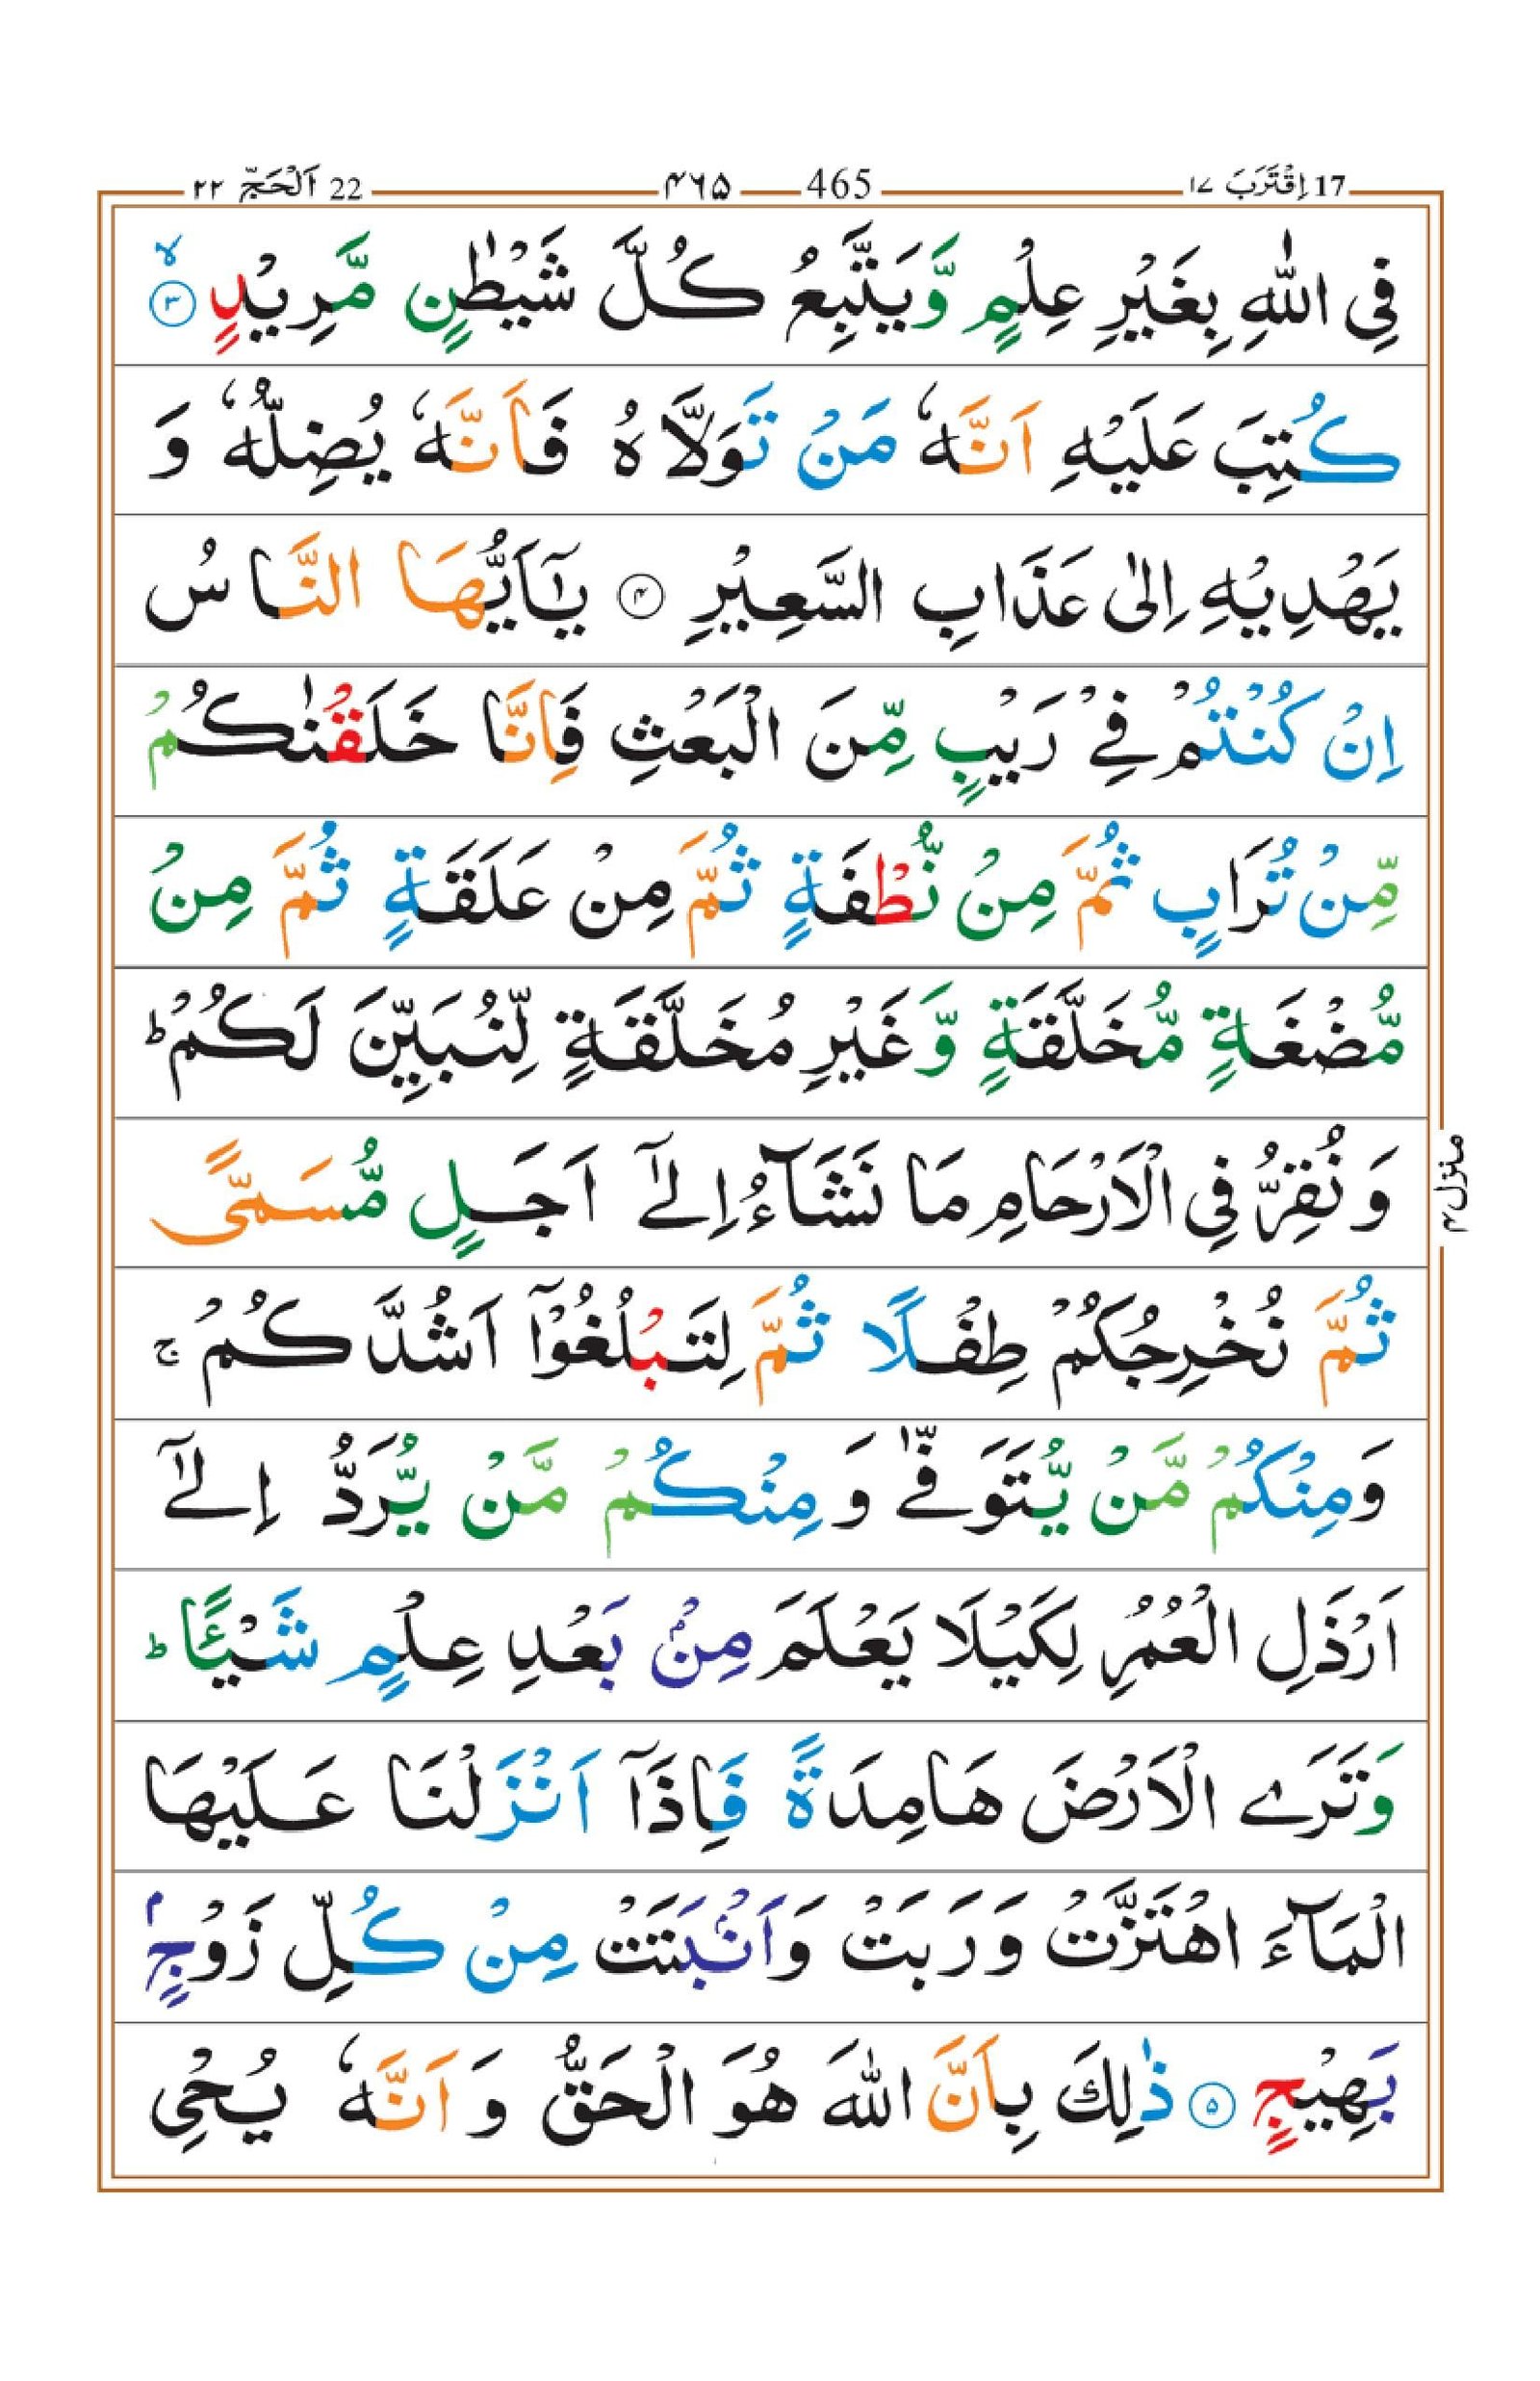 17 اِقْتَرَبَ ١٧ 465 ۴۶۵ 22 اَلْحَجّ ٢٢
فِی اللّٰهِ بِغَیْرِ عِلْمٍ وَّیَتَّبِعُ كُلَّ شَیْطٰنٍ مَّرِیْدٍ ۙ۳
كُتِبَ عَلَیْهِ اَنَّهٗ مَنْ تَوَلَّاهُ فَاَنَّهٗ یُضِلُّهٗ وَ
یَهْدِیْهِ اِلٰی عَذَابِ السَّعِیْرِ ۴ یٰۤاَیُّهَا النَّاسُ
اِنْ كُنْتُمْ فِیْ رَیْبٍ مِّنَ الْبَعْثِ فَاِنَّا خَلَقْنٰكُمْ
مِّنْ تُرَابٍ ثُمَّ مِنْ نُّطْفَةٍ ثُمَّ مِنْ عَلَقَةٍ ثُمَّ مِنْ
مُّضْغَةٍ مُّخَلَّقَةٍ وَّغَیْرِ مُخَلَّقَةٍ لِّنُبَیِّنَ لَكُمْ ؕ
وَ نُقِرُّ فِی الْاَرْحَامِ مَا نَشَآءُ اِلٰۤی اَجَلٍ مُّسَمًّی
ثُمَّ نُخْرِجُكُمْ طِفْلًا ثُمَّ لِتَبْلُغُوْۤا اَشُدَّكُمْ ۚ
وَمِنْكُمْ مَّنْ یُّتَوَفّٰی وَ مِنْكُمْ مَّنْ یُّرَدُّ اِلٰۤی
اَرْذَلِ الْعُمُرِ لِكَیْلَا یَعْلَمَ مِنْۢ بَعْدِ عِلْمٍ شَیْـًٔا ؕ
وَتَرَی الْاَرْضَ هَامِدَةً فَاِذَاۤ اَنْزَلْنَا عَلَیْهَا
الْمَآءَ اهْتَزَّتْ وَ رَبَتْ وَاَنْۢبَتَتْ مِنْ كُلِّ زَوْجٍۭ
بَهِیْجٍ ۵ ذٰلِكَ بِاَنَّ اللّٰهَ هُوَ الْحَقُّ وَ اَنَّهٗ یُحْیِ
منزل۴